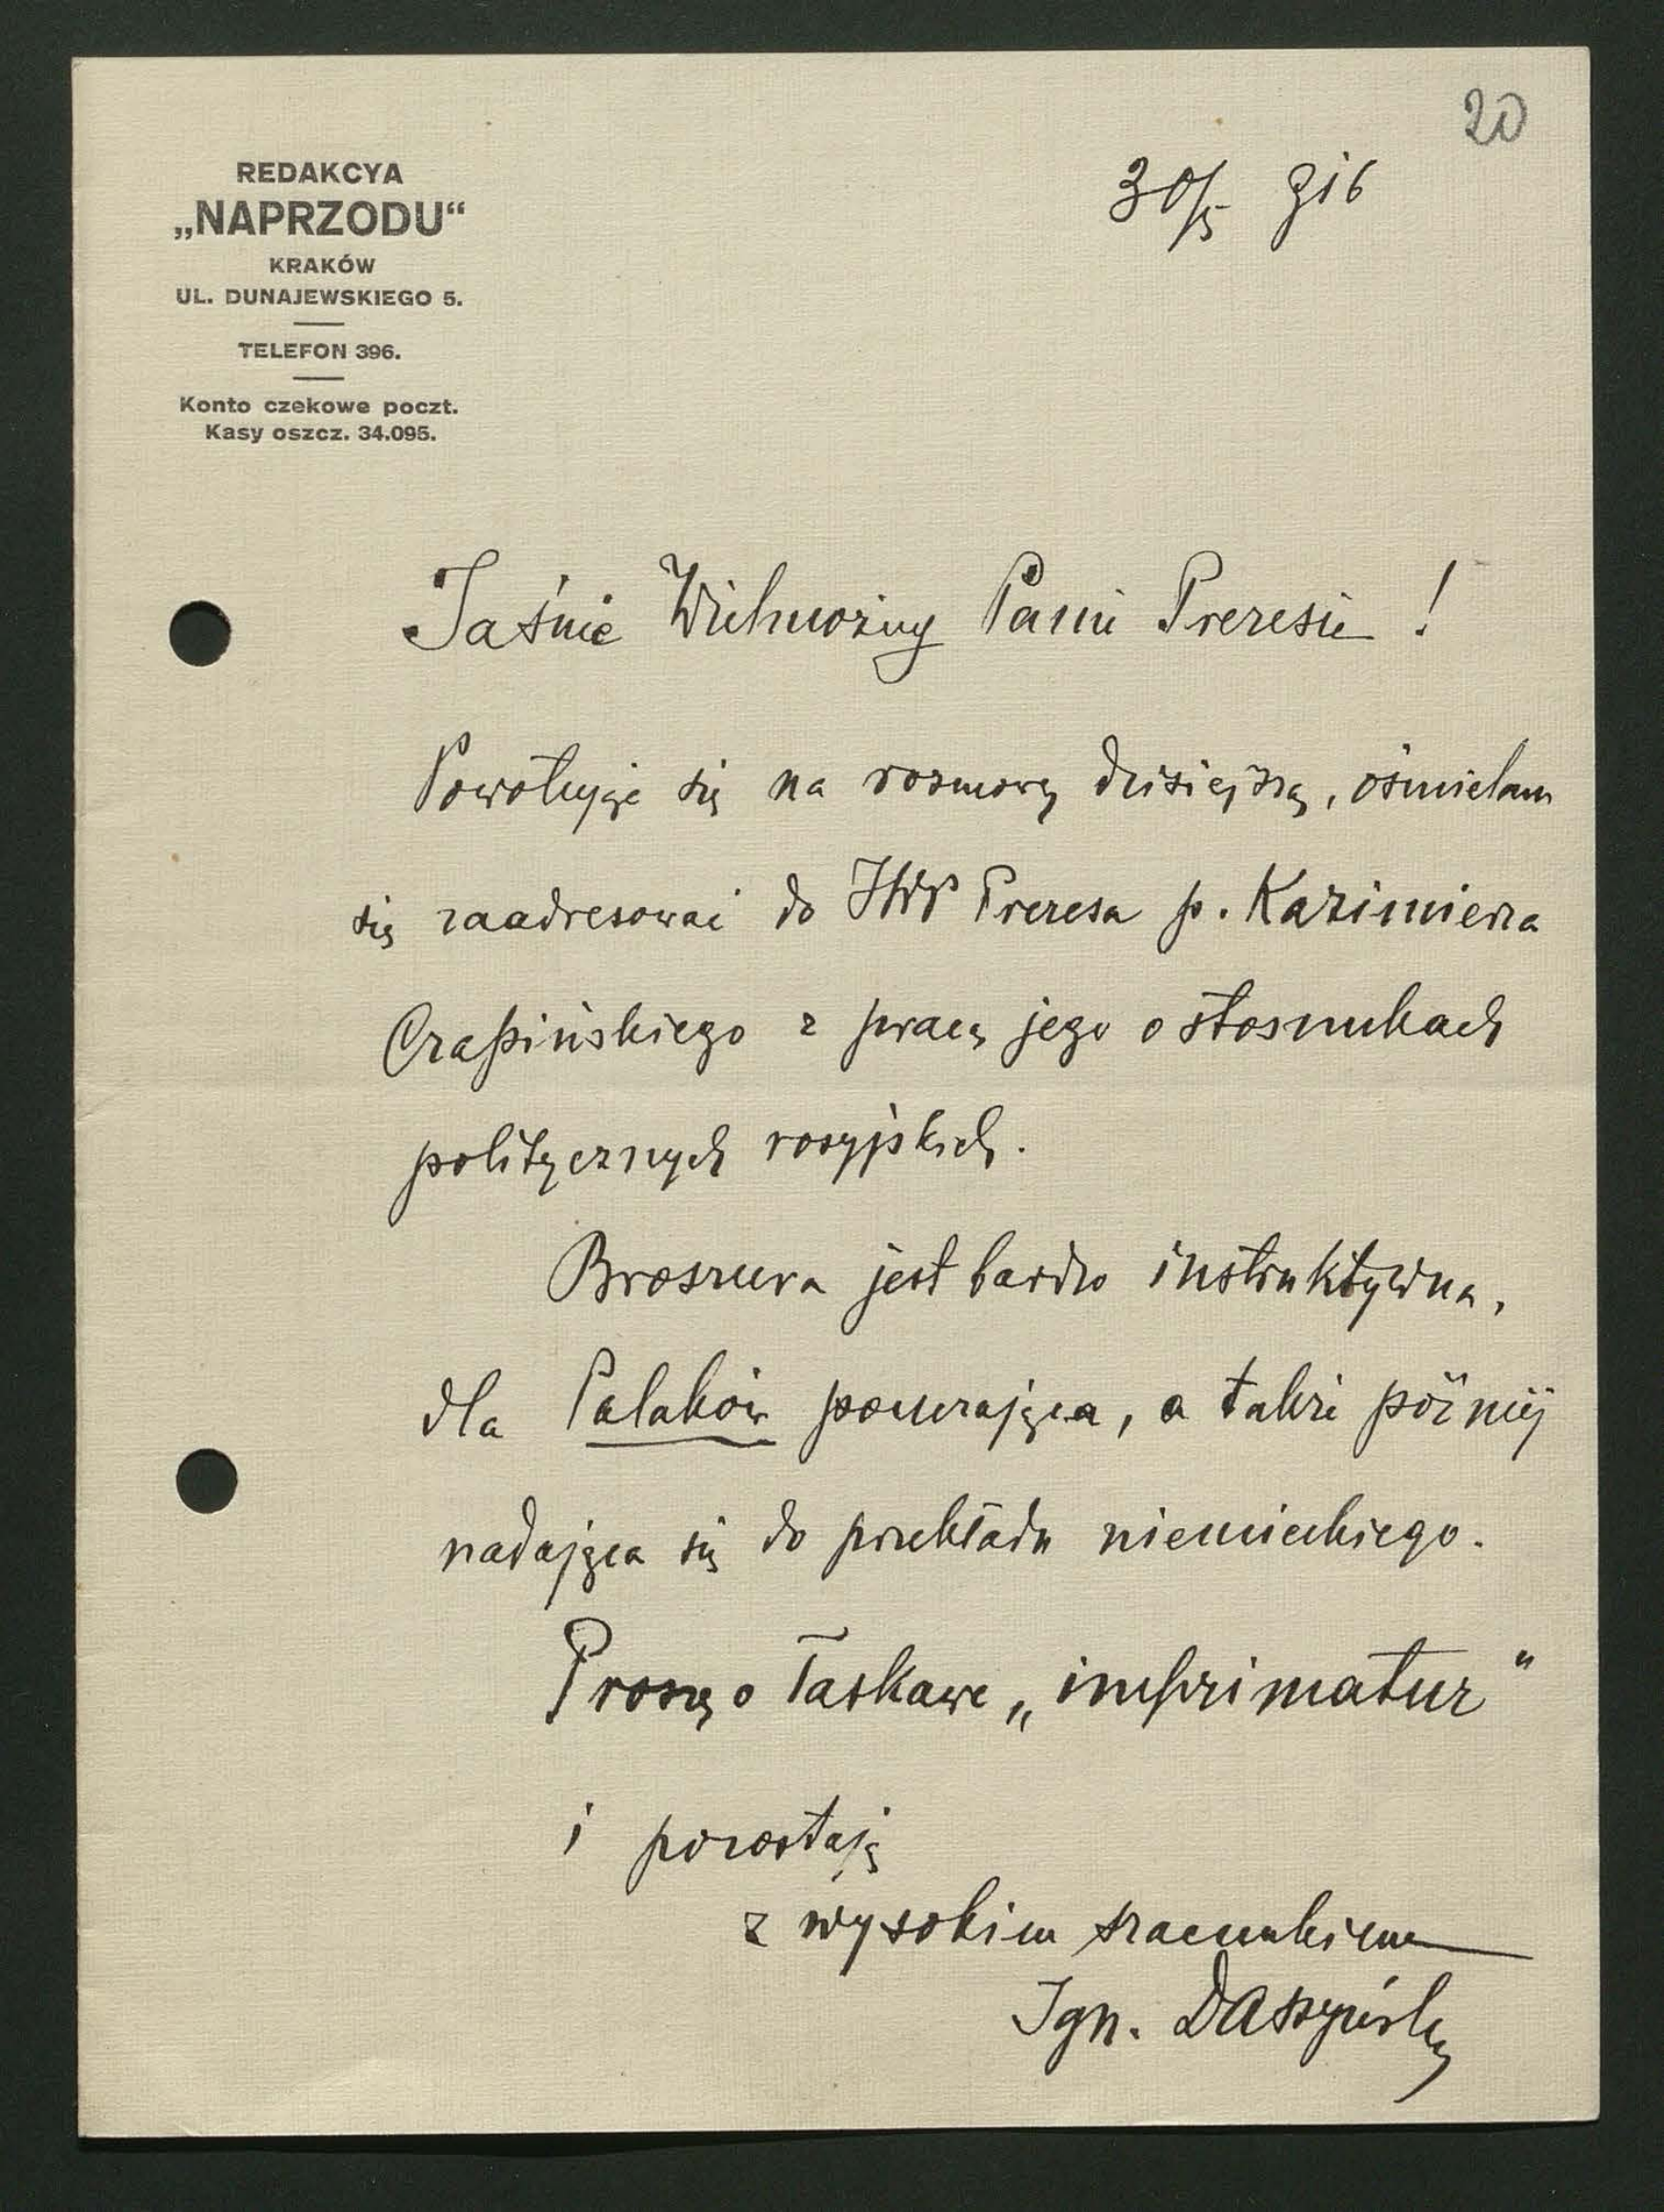 20
30/5 916
REDAKCYA
„NAPRZODU“
KRAKÓW
UL. DUNAJEWSKIEGO 5.
TELEFON 396.
Konto czekowe poczt.
Kasy oszcz. 34.095.
Jaśnie Wielmożny Panie Prezesie !
Powołując się na rozmowę dzisiejszą, ośmielam
się zaadresować do JWP Prezesa p. Kazimierza
Czapińskiego z pracą jego o stosunkach
politycznych rosyjskich.
Broszura jest bardzo instruktywna,
dla Polaków pouczająca, a także później
nadająca się do przekładu niemieckiego.
Proszę o łaskawe „imprimatur“
i pozostaję
z wysokim szacunkiem
Ign. Daszyński